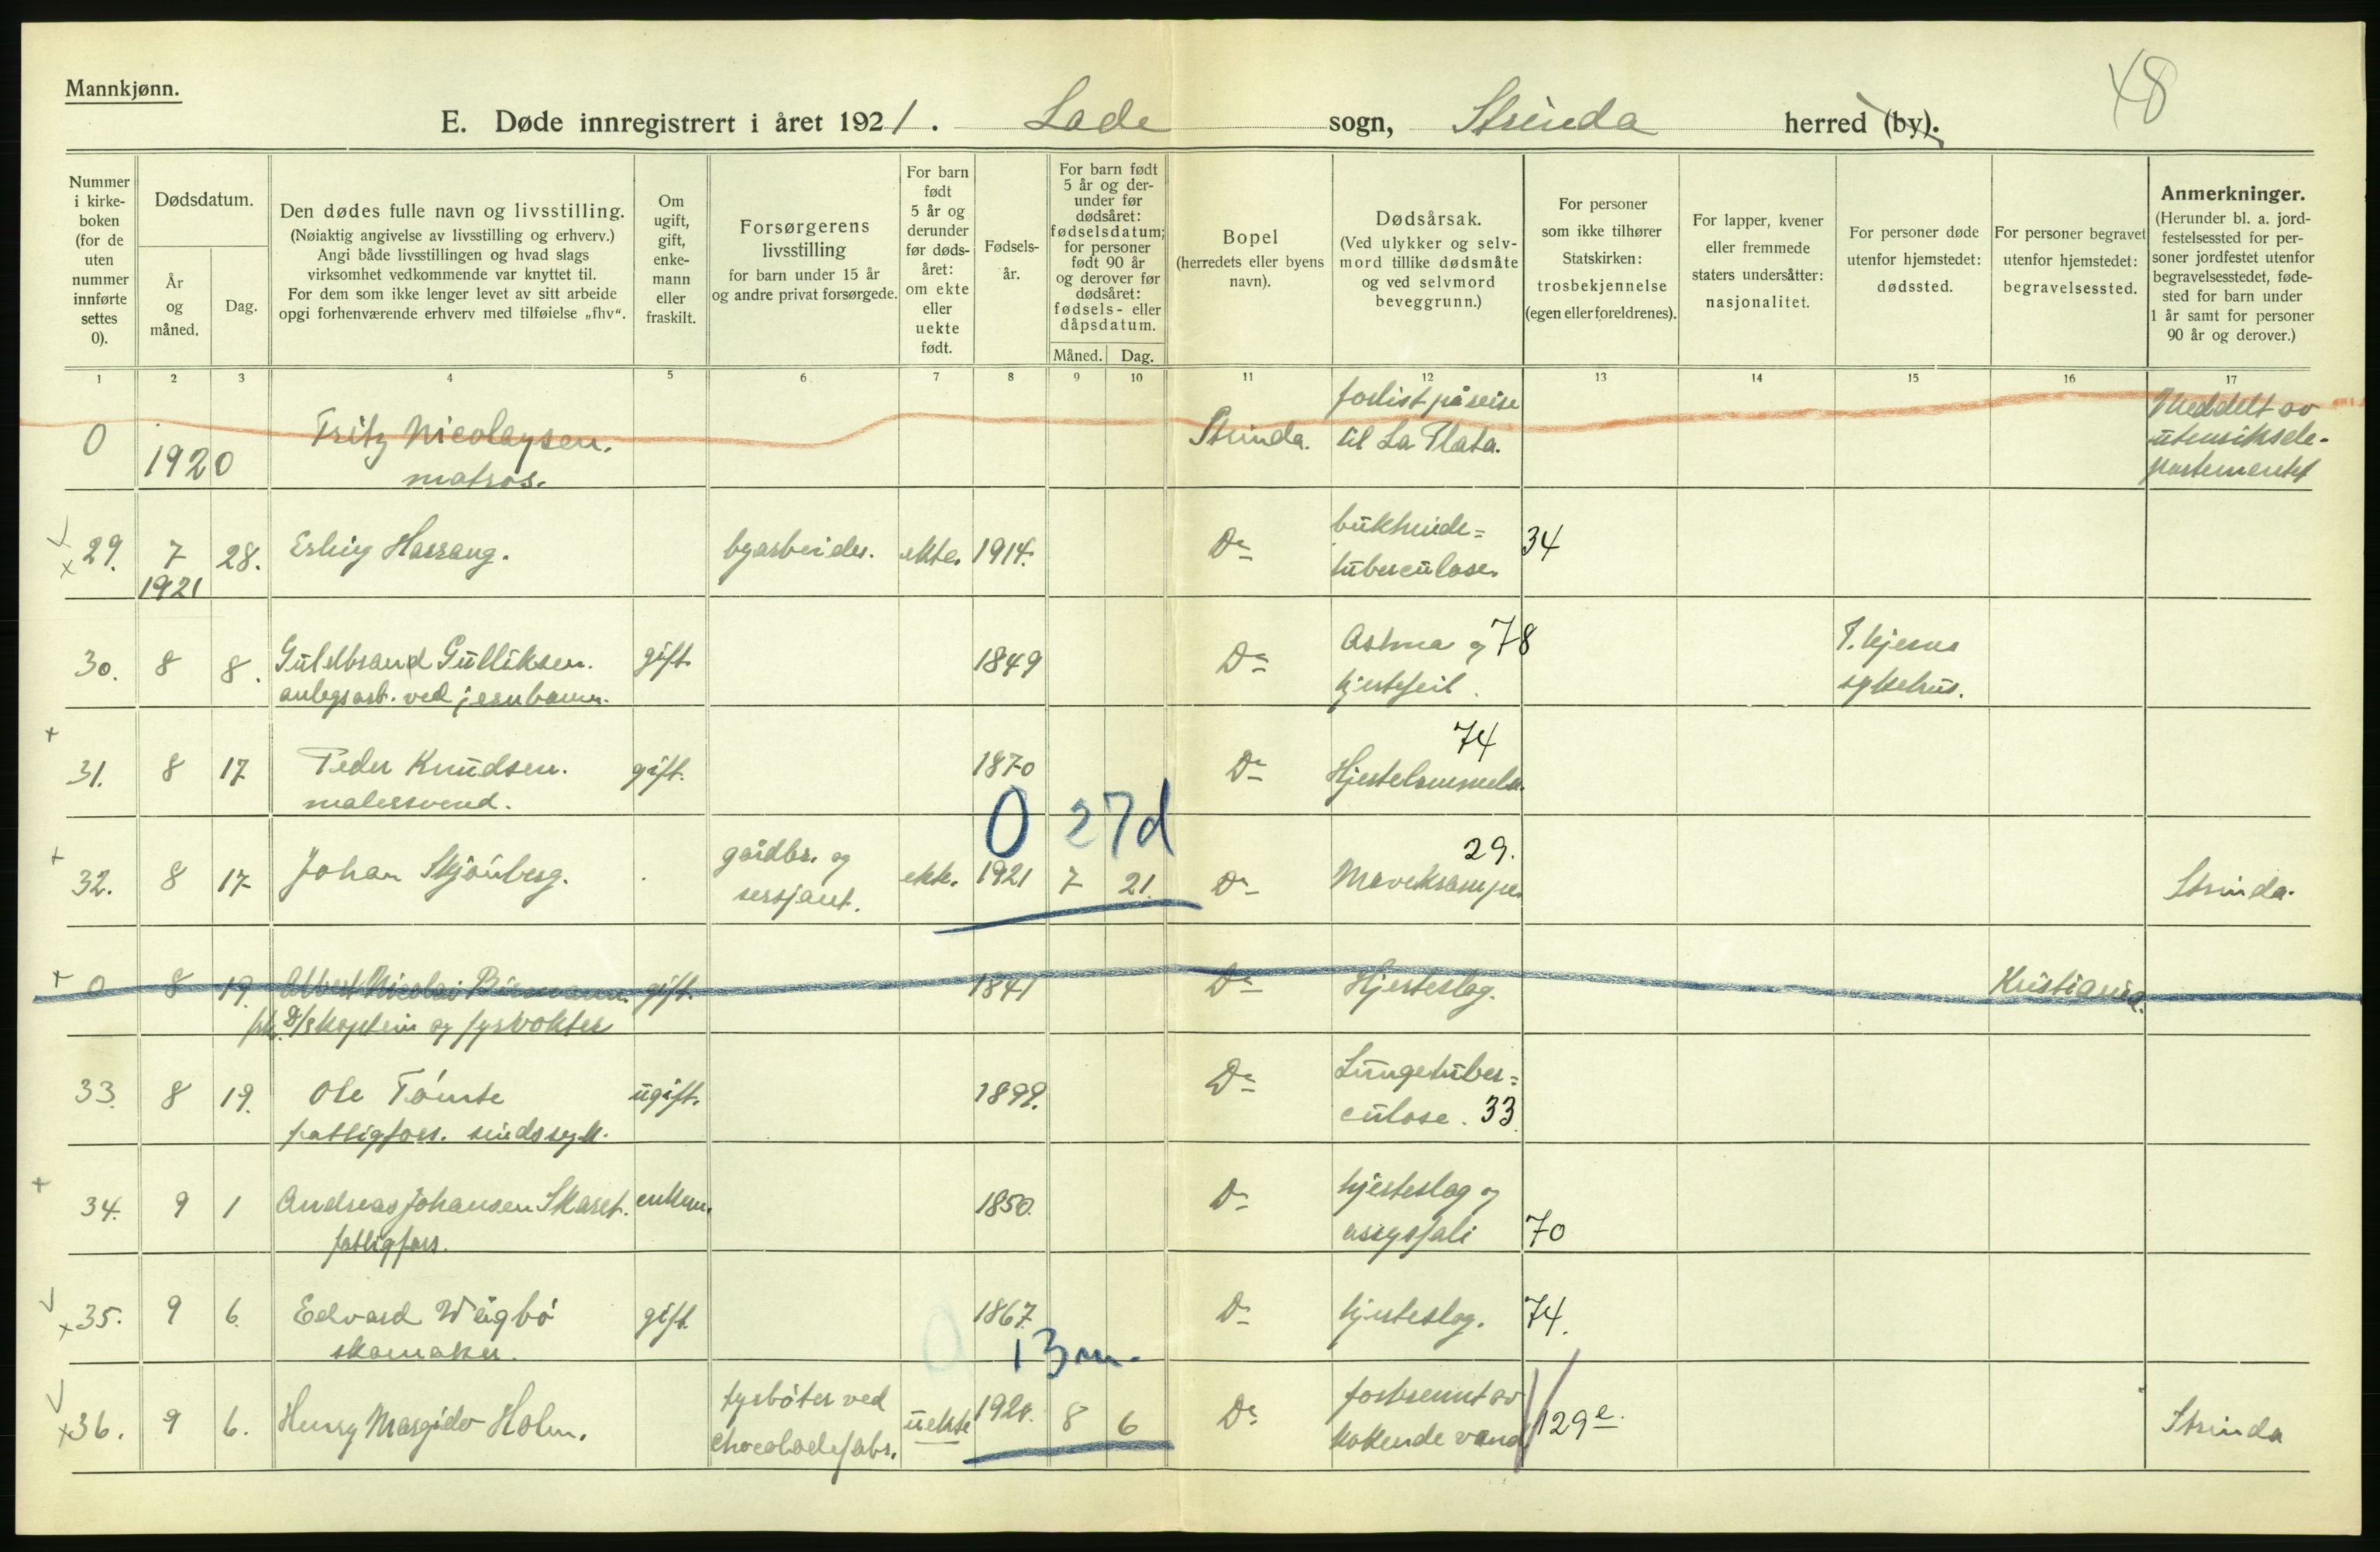 Mannkjønn.
48
E. Døde innregistrert i året 1921. Lade sogn, Strinda herred (by).
Nummer
i kirke-
boken
(for de
uten
nummer
innførte
settes
0).
Dødsdatum.
År
og
måned.
Dag.
Den dødes fulle navn og livsstilling.
(Nøiaktig angivelse av livsstilling og erhverv.)
Angi både livsstillingen og hvad slags
virksomhet vedkommende var knyttet til.
For dem som ikke lenger levet av sitt arbeide
opgi forhenværende erhverv med tilføielse „fhv“.
Om
ugift,
gift,
enke-
mann
eller
fraskilt.
Forsørgerens
livsstilling
for barn under 15 år
og andre privat forsørgede.
For barn
født
5 år og
derunder
før døds-
året:
om ekte
eller
uekte
født.
Fødsels-
år.
For barn født
5 år og der-
under før
dødsåret:
fødselsdatum;
for personer
født 90 år
og derover før
dødsåret:
fødsels- eller
dåpsdatum.
Måned. Dag.
Bopel
(herredets eller byens
navn).
Dødsårsak.
(Ved ulykker og selv-
mord tillike dødsmåte
og ved selvmord
beveggrunn.)
For personer
som ikke tilhører
Statskirken:
trosbekjennelse
(egen eller foreldrenes).
For lapper, kvener
eller fremmede
staters undersåtter:
nasjonalitet.
For personer døde
utenfor hjemstedet:
dødssted.
For personer begravet
utenfor hjemstedet:
begravelsessted.
Anmerkninger.
(Herunder bl. a. jord-
festelsessted for per-
soner jordfestet utenfor
begravelsesstedet, føde-
sted for barn under
1 år samt for personer
90 år og derover.)
1 2 3 4 5 6 7 8 9 10 11 12 13 14 15 16 17
0 1920 Fritz Nicolaysen.
matros.
Strinda.
forlist på reise
til La Plata.
Meddelt av
utenriksde-
partementet
29. 7 28. Erling Harrang. byarbeider. ekte. 1914. Do
1921
bukhinde=
tuberculose. 34
30. 8 8. Guldbrand Gulliksen. gift. 1849 Do
anlegsarb. ved jernbanen.
Astma og 78
hjertefeil.
T. hjems
sykehus.
31. 8 17 Peder Knudsen. gift. 1870 Do
malersvend.
74
Hjertelammelse.
0 27d
32. 8 17 Johan Skjönberg.
gårdbr. og
sersjant.
ekte. 1921 7 21. Do
29.
Mavekrampe.
Strinda.
0 8 19. Albert Nicolai gift. 1841 Do Hjerteslag. Kristiania.
fhv. D/Skaptein og fyrvokter
33. 8 19. Ole Tömte ugift. 1899. Do
fattigfors. sindssyk.
Lungetuber=
culose. 33
34. 9 1 Andreas Johansen Skaret. enkem. 1850. Do
fattigfors.
hjerteslag og
70
35. 9 6. Edvard Vågbö gift. 1867. Do hjerteslag. 74.
skomaker.
0 13 m.
36. 9 6. Henry Margido Holm.
fyrböter ved
chocoladefabr.
uekte 1920. 8 6 Do
forbrennt av
kokende vand 129 e.
Strinda